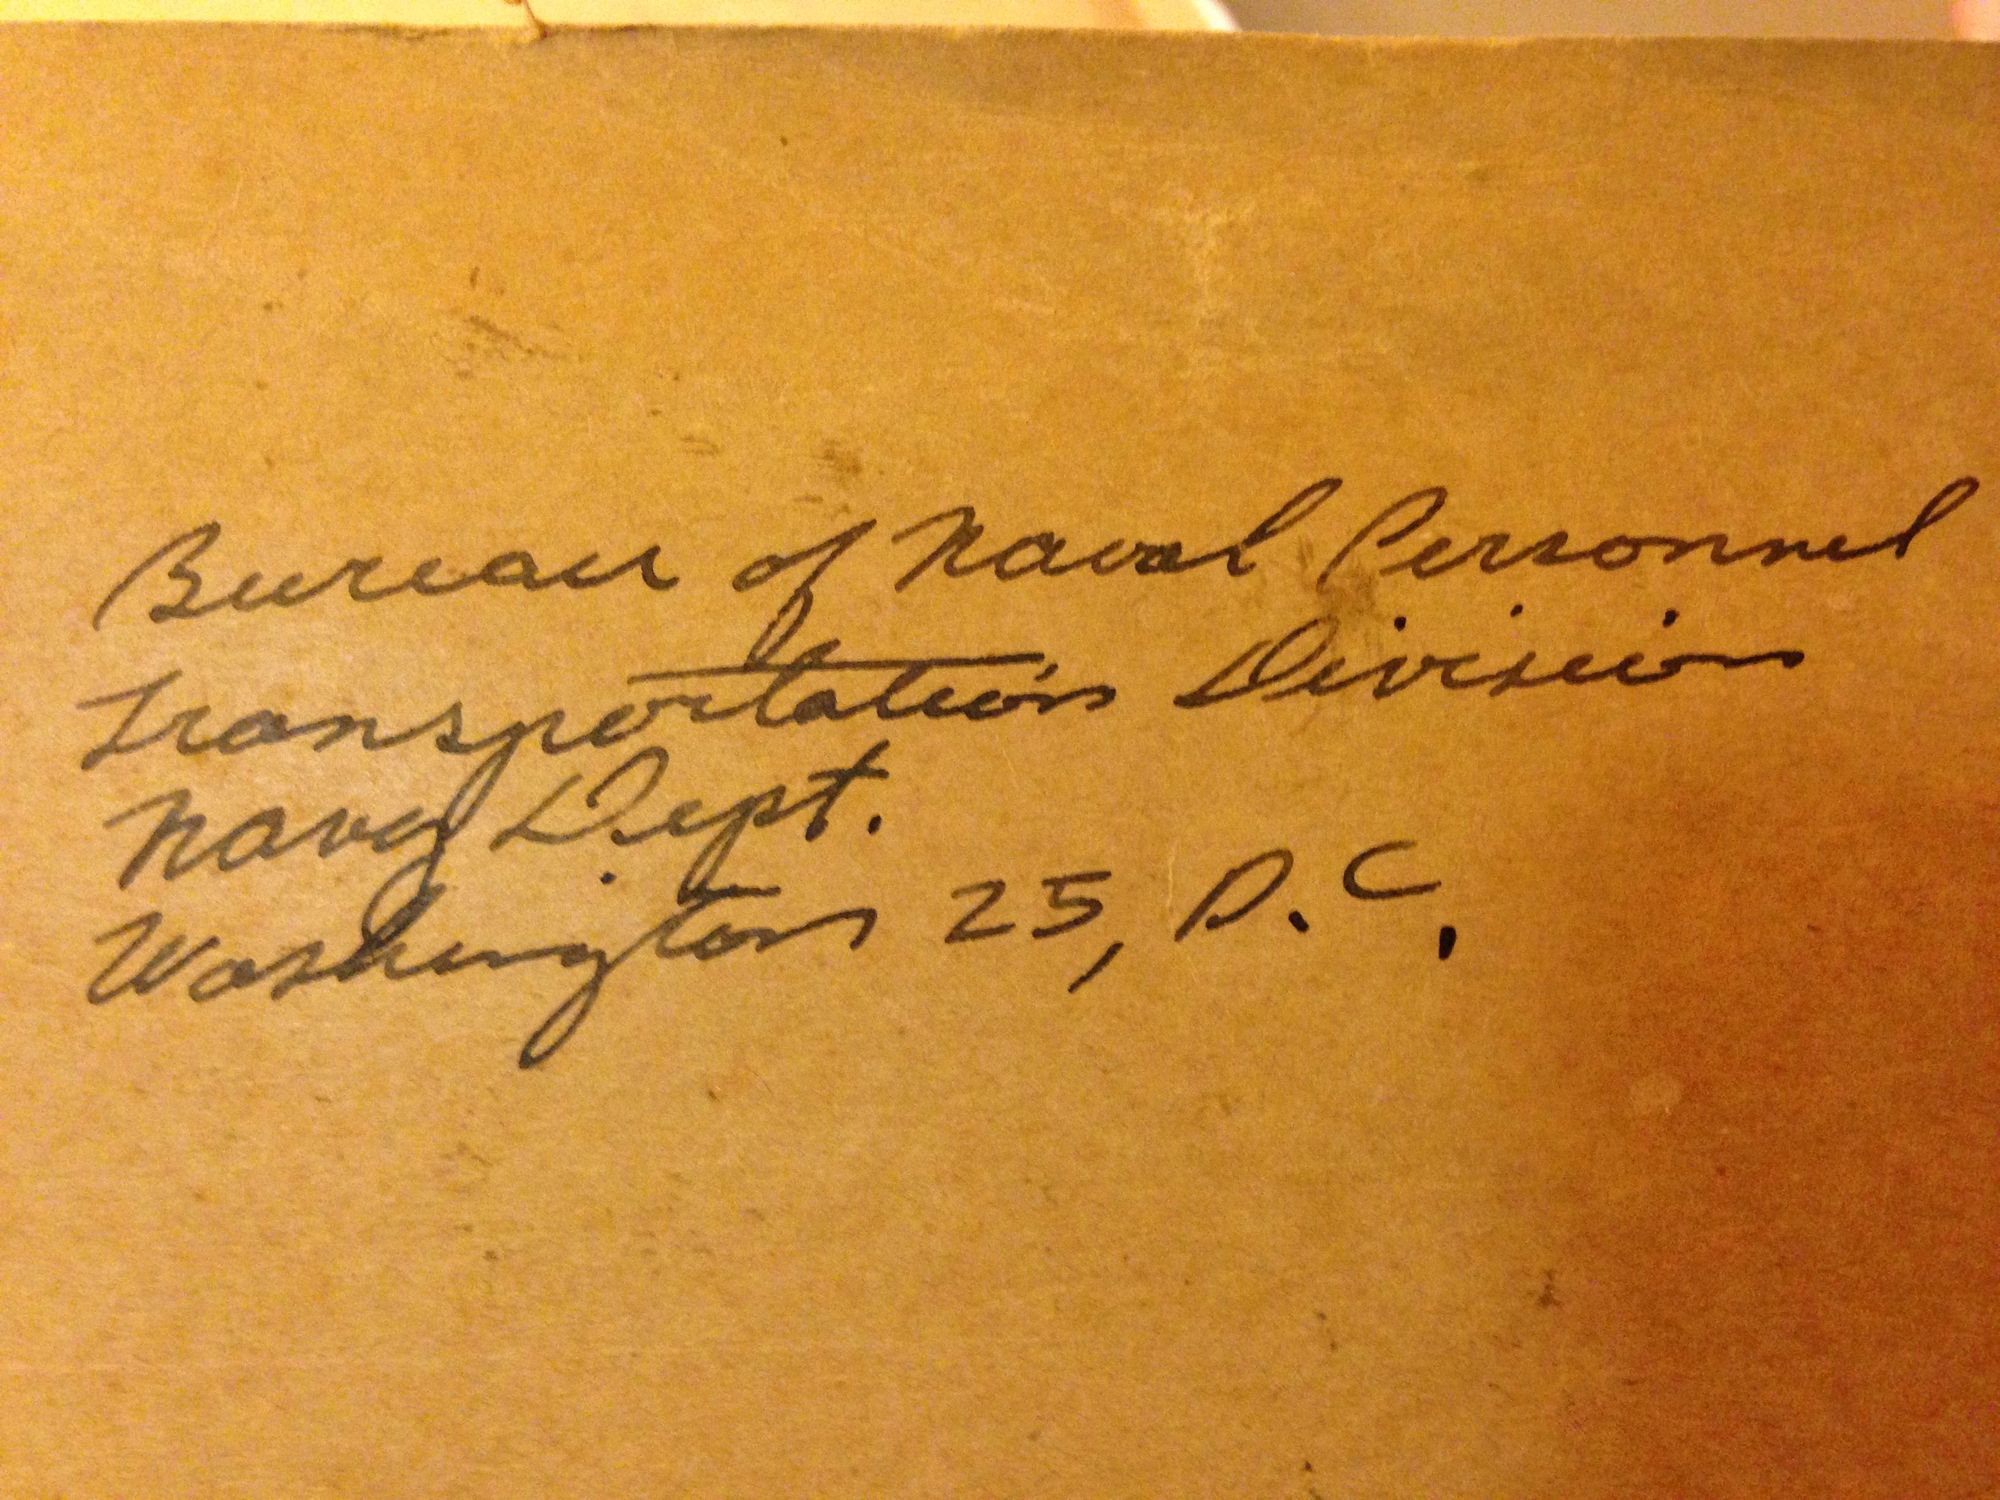 Bureau of Naval Personnel
Transportation Division
Navy Dept.
Washington 25, D.C.